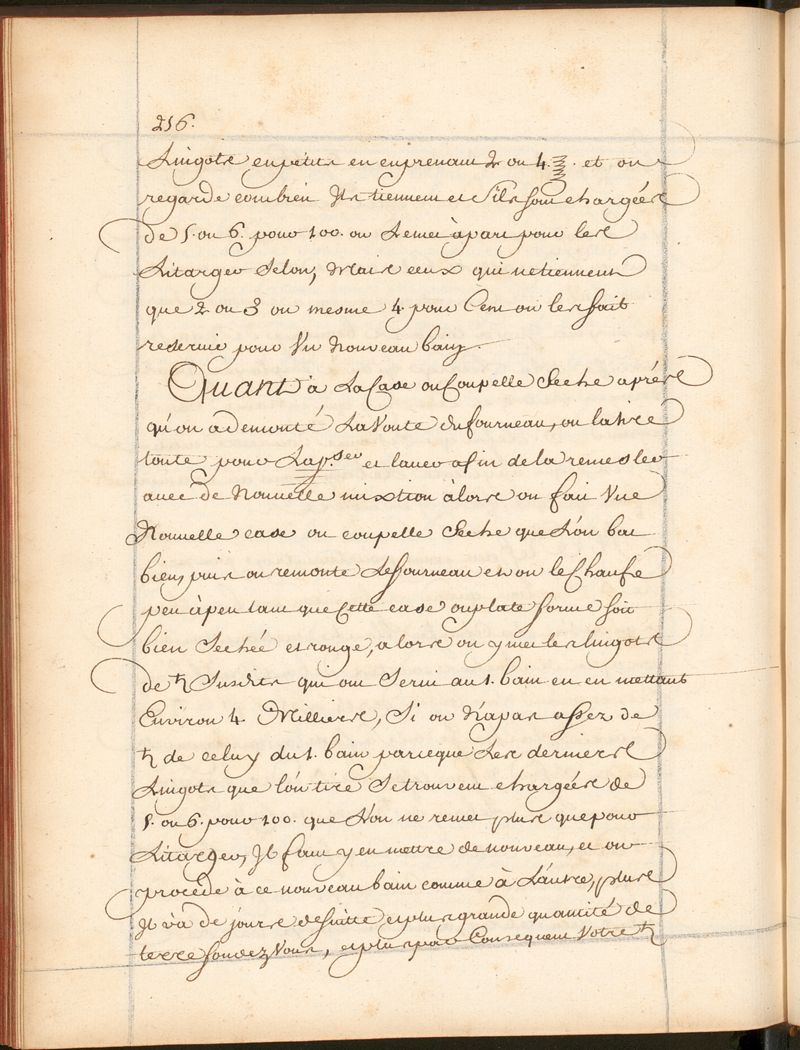 216.
Lingots en petits en en prenant 2 ou 4. et on
regarde combien Ils tiennent et s'ils sont chargées
de 5. ou 6. pour 100. on Le met à part pour les
Litarger selon, Mais ceux qui ne tiennent
que 2 ou 3 ou mesme 4. pour Cent on les fait
reservir pour Un Nouveau bain
Quant à La Case ou Coupelle Seche aprés
qu'on a demonté La Voute du fourneau, on la tire
toute pour La et laver afin de la remesler
avec de Nouvelle mixtion àlors on fait Une
Nouvelle case ou coupelle Seche que L'on bat
bien, puis on remonte Le fourneau et on le Chaufe
peu à peu tant que Cette case ou plate forme soit
bien Sechée et rouge, alors on y met les lingots
de ♄ Susdits qui ont Servi au 1. bain en en mettant
Environ 4. Milliers, Si on N'a pas assez de
♄ de celuy du 1. bain parceque Les derniers
Lingots que l'on tire Se trouvent chargées de
5. ou 6. pour 100. que L'on ne remet plus que pour
Litarger, Il faut y en mettre de nouveau, et on
procede à ce nouveau bain comme à L'autre, plus
Il và de jours de suitte et plus grande quantité de
terre fondez Vous, et plus par Consequent Votre ♄